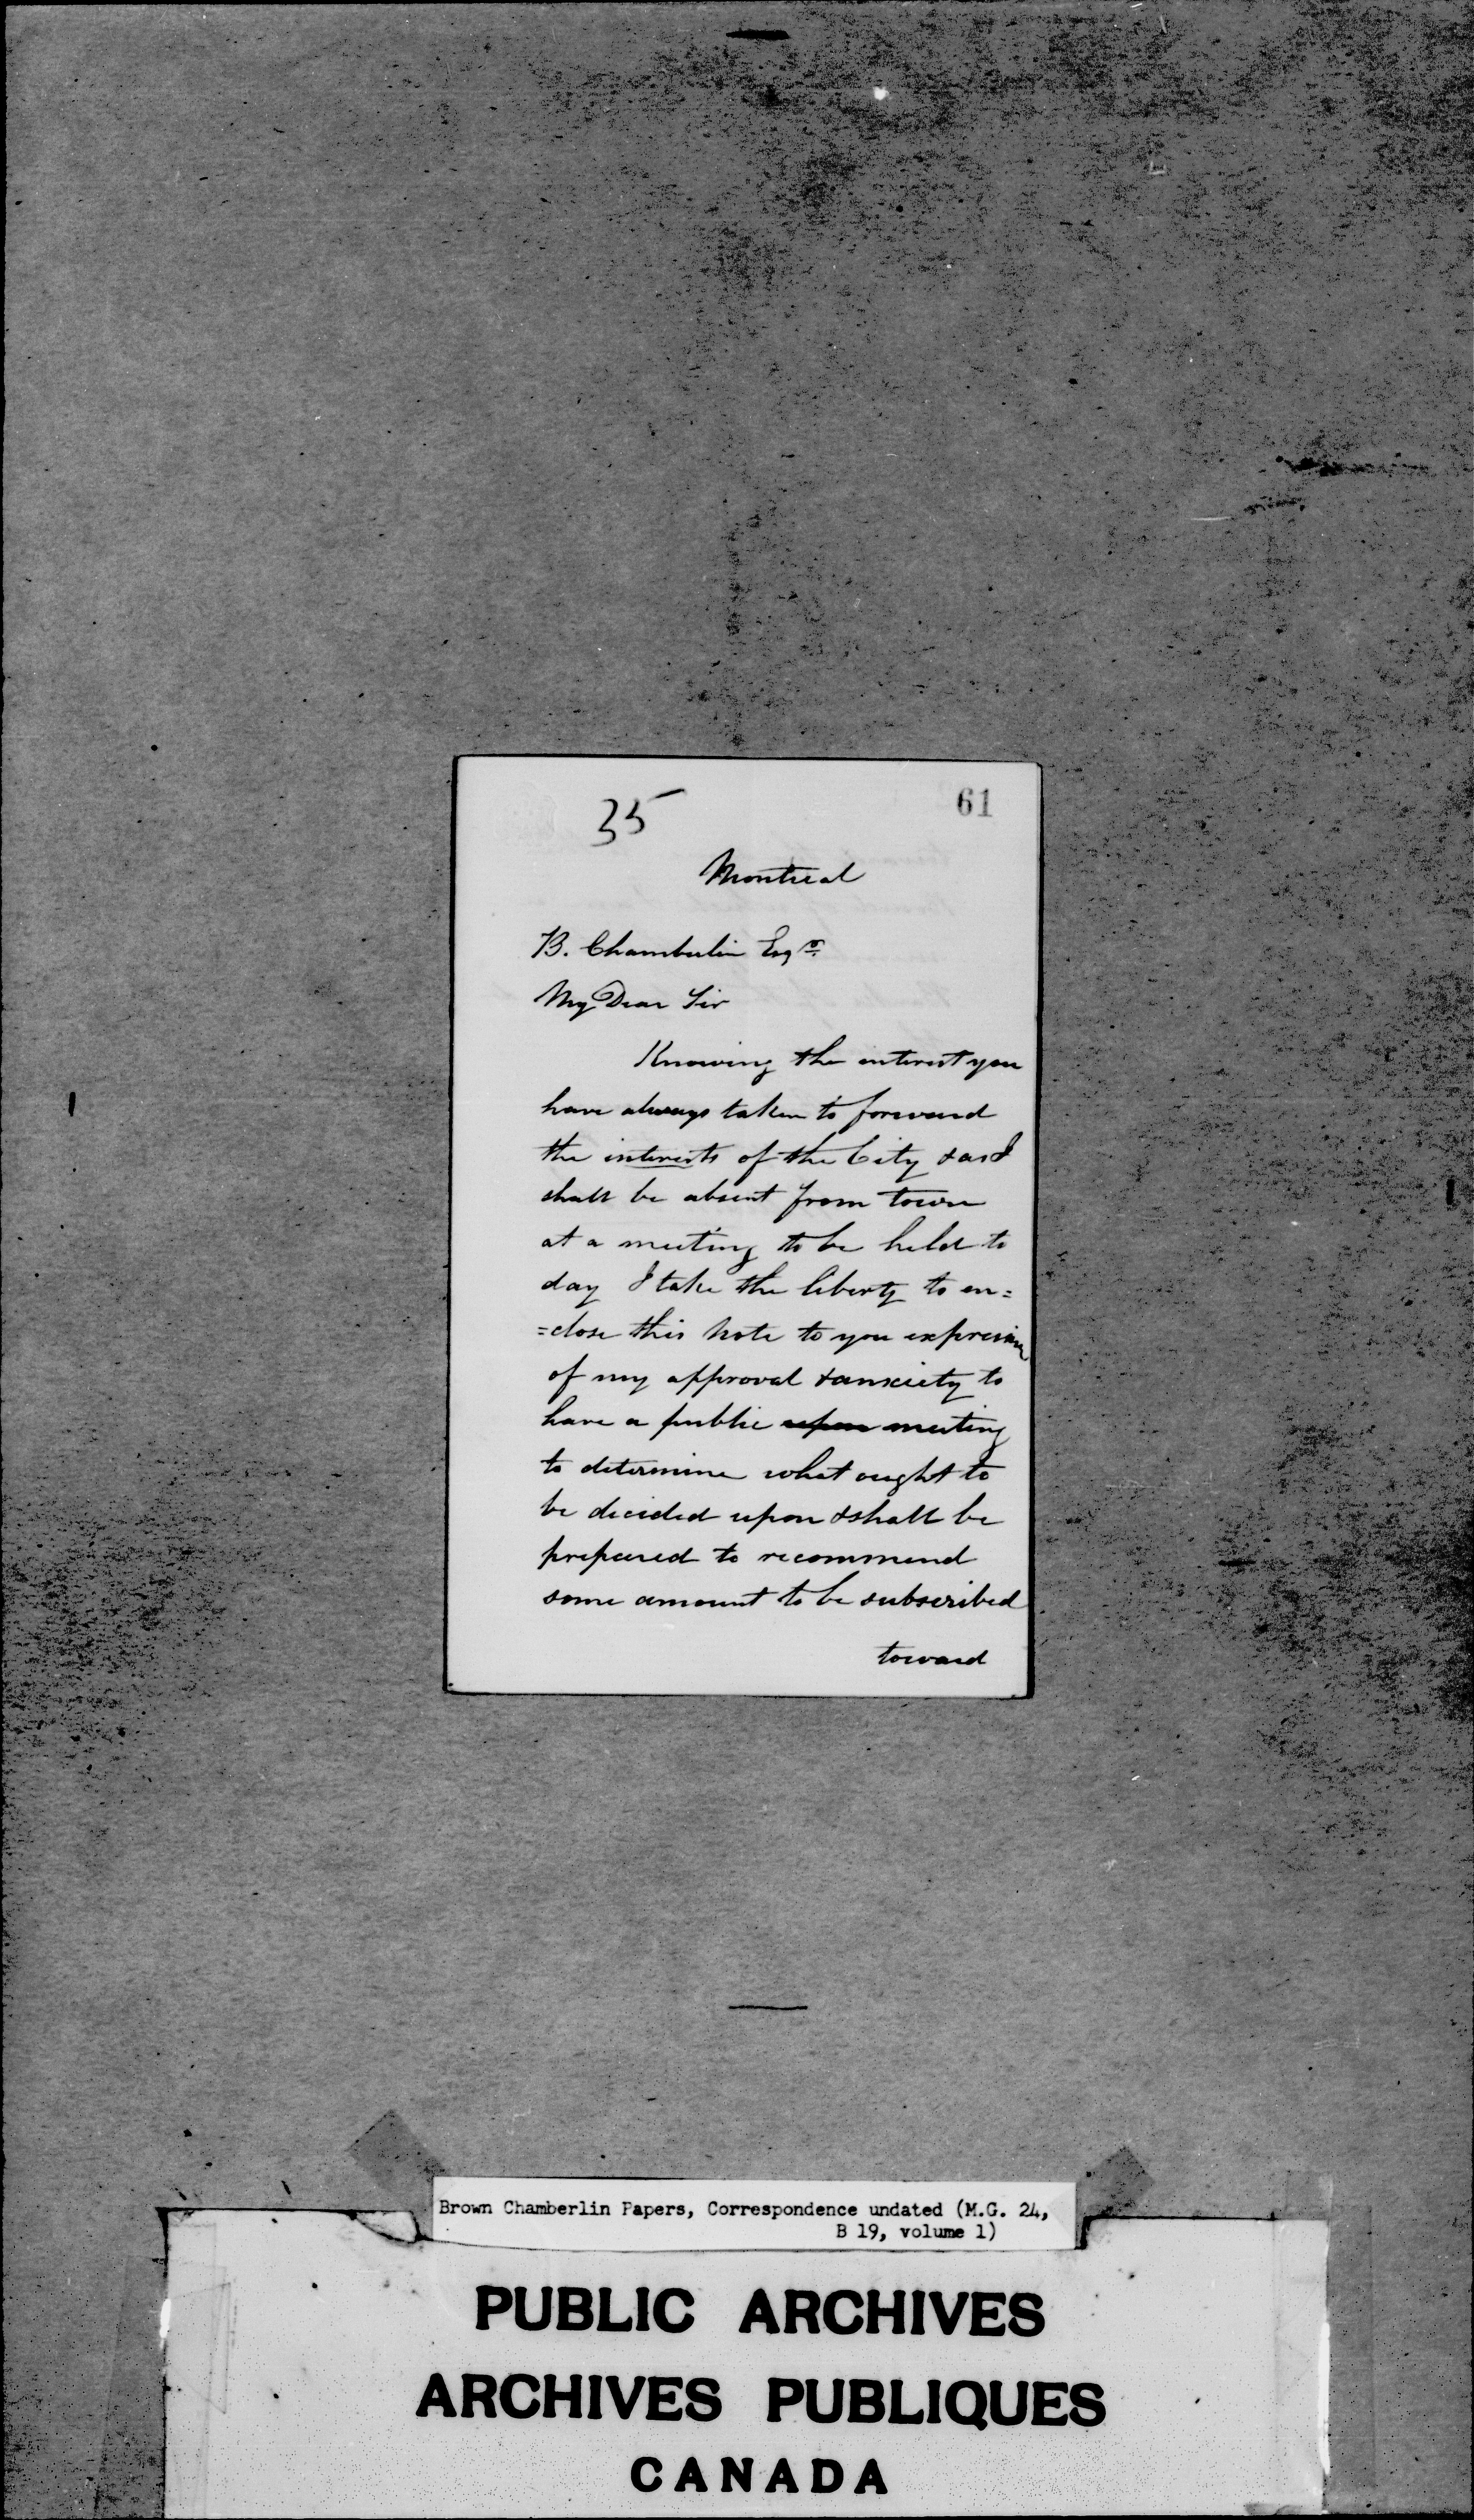 35
61
Montreal
B. Chamberlin Esqr.
My Dear Sir
Knowing the interest you
have always taken to forward
the interests of the City & as I
shall be absent from town
at a meeting to be held to
day I take the liberty to en=
=close this note to you expressive
of my approval & anxiety to
have a public upon meeting
to determine what ought to
be decided upon & shall be
prepared to recommend
some amount to be subscribed
toward
Brown Chamberlin Papers, Correspondence undated (M.G. 24,
B 19, volume 1)
PUBLIC ARCHIVES
ARCHIVES PUBLIQUES
CANADA